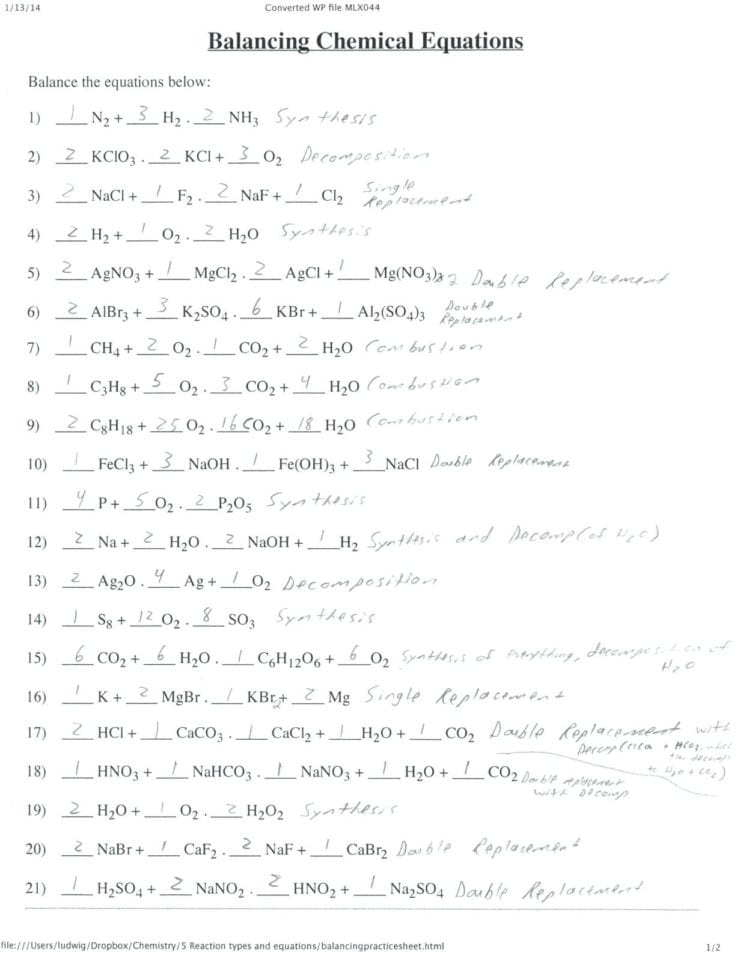 1/13/14 Converted WP file MLX044
Balancing Chemical Equations
Balance the equations below:
1) 1 N₂ + 3 H₂ . 2 NH₃ Synthesis
2) 2 KClO₃ . 2 KCl + 3 O₂ Decomposition
3) 2 NaCl + 1 F₂ . 2 NaF + 1 Cl₂ Single Replacement
4) 2 H₂ + 1 O₂ . 2 H₂O Synthesis
5) 2 AgNO₃ + 1 MgCl₂ . 2 AgCl + 1 Mg(NO₃)₂ 2 Double Replacement
6) 2 AlBr₃ + 3 K₂SO₄ . 6 KBr + 1 Al₂(SO₄)₃ Double Replacement
7) 1 CH₄ + 2 O₂ . 1 CO₂ + 2 H₂O Combustion
8) 1 C₃H₈ + 5 O₂ . 3 CO₂ + 4 H₂O Combustion
9) 2 C₈H₁₈ + 25 O₂ . 16 CO₂ + 18 H₂O Combustion
10) 1 FeCl₃ + 3 NaOH . 1 Fe(OH)₃ + 3 NaCl Double Replacement
11) 4 P + 5 O₂ . 2 P₂O₅ Synthesis
12) 2 Na + 2 H₂O . 2 NaOH + 1 H₂ Synthesis and Decomp (of H₂O)
13) 2 Ag₂O . 4 Ag + 1 O₂ Decomposition
14) 1 S₈ + 12 O₂ . 8 SO₃ Synthesis
15) 6 CO₂ + 6 H₂O . 1 C₆H₁₂O₆ + 6 O₂ Synthesis of everything, decomposition of H₂O
16) 1 K + 2 MgBr . 1 KBr₂ + 2 Mg Single Replacement
17) 2 HCl + 1 CaCO₃ . 1 CaCl₂ + 1 H₂O + 1 CO₂ Double Replacement with
Decomp
18) 1 HNO₃ + 1 NaHCO₃ . 1 NaNO₃ + 1 H₂O + 1 CO₂ Double replacement with Decomp
to H₂O + CO₂)
19) 2 H₂O + 1 O₂ . 2 H₂O₂ Synthesis
20) 2 NaBr + 1 CaF₂ . 2 NaF + 1 CaBr₂ Double Replacement
21) 1 H₂SO₄ + 2 NaNO₂ . 2 HNO₂ + 1 Na₂SO₄ Double Replacement
file:///Users/ludwig/Dropbox/Chemistry/5 Reaction types and equations/balancingpracticesheet.html 1/2